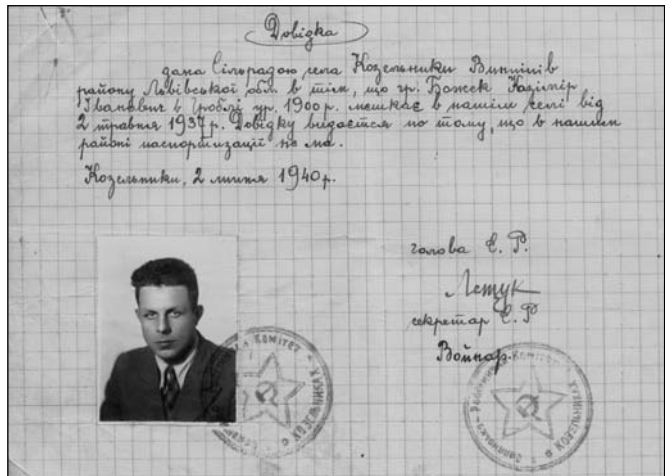 Довідка
дана Сільрадою села Козельники Винників
району Львівської обл. в тім, що гр. Божек Казімір
Іванович в Гроблі ур. 1900 р. мешкає в нашім селі від
2 травня 1937 р. Довідку видається по тому, що в нашім
районі паспортизації не ма.
Козельники, 2 липня 1940 р.
голова С. Р.
Лещук
секретар С. Р
Войнар.
Комітет
Комітет